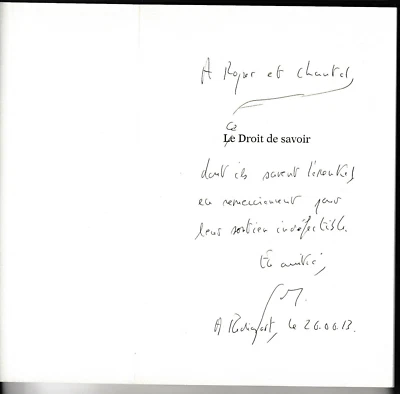 A Roger et Chantal,
ce
Le Droit de savoir
dont ils savent
en remerciement pour
leur soutien indéfectible.
En amitié,
A Rochefort, le 26.06.13.